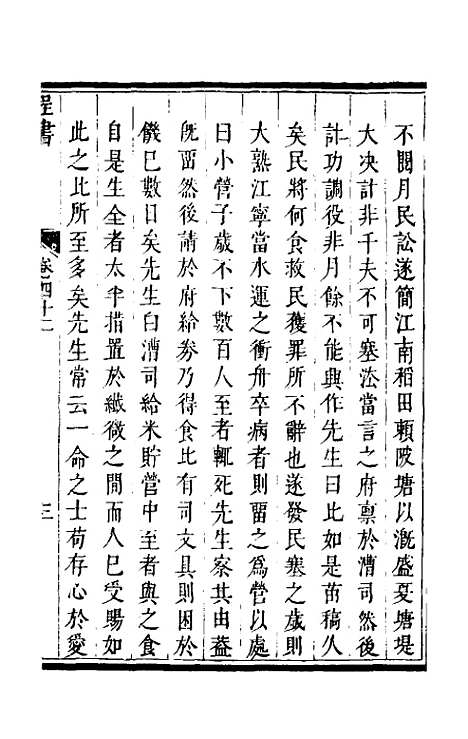 不閱月民訟遂簡江南稻田賴陂塘以溉盛夏塘堤
大决計非千夫不可塞法當言之府禀於漕司然後
計功調役非月餘不能興作先生曰比如是苗稿久
矣民將何食救民獲罪所不辭也遂發民塞之歲則
大熟江寧當水運之衝舟卒病者則畱之爲營以處
曰小營子歲不下數百人至者輒死先生察其由葢
既畱然後請於府給劵乃得食比有司文具則困於
饑已數日矣先生白漕司給米貯營中至者與之食
自是生全者太半措置於纎微之間而人已受賜如
此之比所至多矣先生常云一命之士苟存心於愛
程書
卷四十二
三